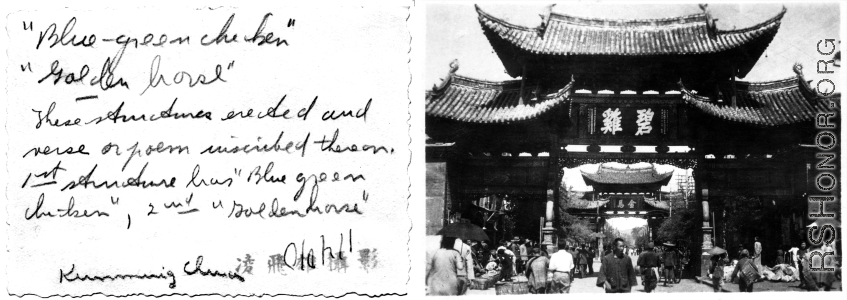 "Blue-green chicken"
"Golden horse"
These structures erected and
verse or poem inscribed thereon.
1st structure has "Blue green
chicken", 2nd "Golden horse"
Kunming China
凌飛攝影
碧雞
RSHONOR.ORG